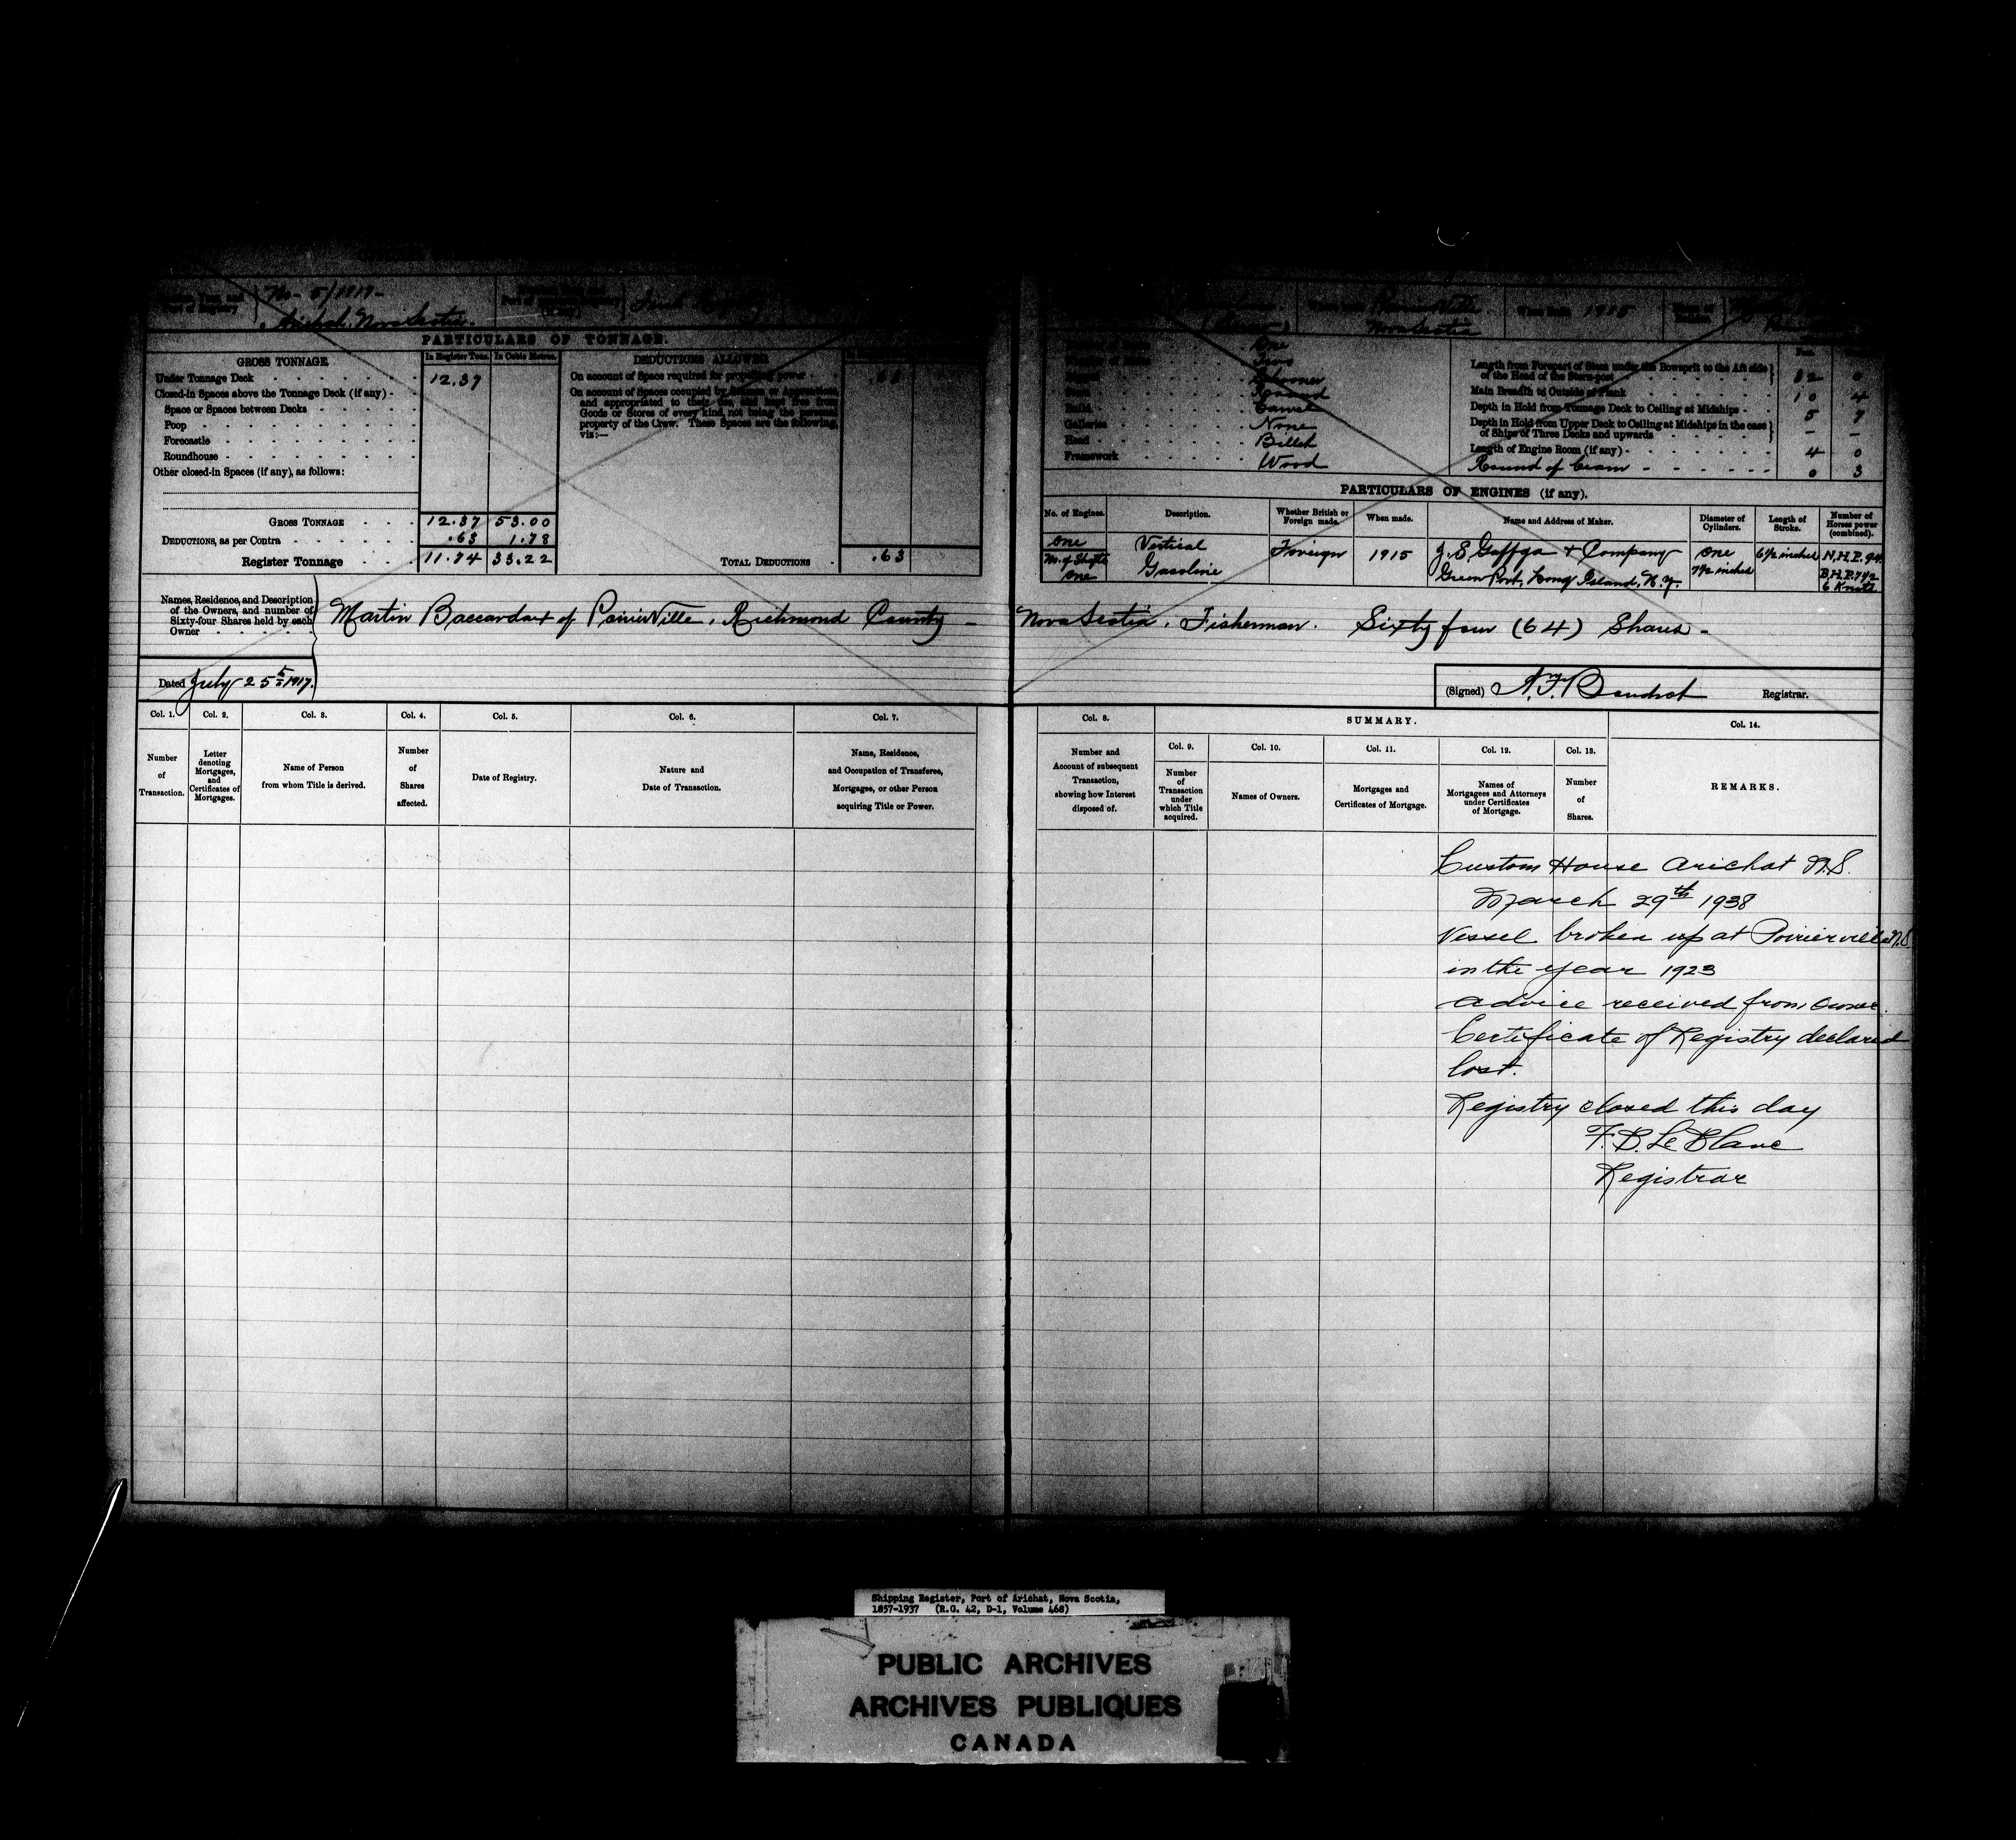 No. 5/1917-
Arichat, Nova Scotia.
1915
PARTICULARS OF TONNAGE.
GROSS TONNAGE.
In Register Tons.
In Cubic Metres.
DEDUCTIONS ALLOWED
Under Tonnage Deck
12.37
On account of Space required for propelling power
.63
Closed-in Spaces above the Tonnage Deck (if any)
On account of Spaces occupied by Seamen or Apprentices,
and appropriated to their use, and kept free from
Space or Spaces between Decks
Goods or Stores of every kind, not being the personal
Poop
property of the Crew. These Spaces are the following,
viz:—
Forecastle
Roundhouse
Other closed-in Spaces (if any), as follows:
GROSS TONNAGE 12.37 53.00
DEDUCTIONS, as per Contra .63 1.78
Register Tonnage 11.74 33.22
TOTAL DEDUCTIONS .63
One
Two
Schooner
Round
Build Carvel
Galleries None
Head Billet
Framework Wood
Length from Forepart of Stem under the Bowsprit to the Aft side
of the Head of the Stern-post 32 0
Main Breadth to Outside of Plank 10 4
Depth in Hold from Tonnage Deck to Ceiling at Midships 5 7
Depth in Hold from Upper Deck to Ceiling at Midships in the case
of Ships of Three Decks and upwards - -
Length of Engine Room (if any) 4 0
Round of beam 0 3
PARTICULARS OF ENGINES (if any).
No. of Engines.
Description.
Whether British or Foreign made.
When made.
Name and Address of Maker.
Diameter of Cylinders.
Length of Stroke.
Number of Horses power (combined).
One
No. of Shafts
One
Vertical
Gasoline
Foreign
1915
J. S. Gaffga & Company
Green Port, Long Island, N.Y.
One
7½ inches
6½ inches
N.H.P.
B.H.P. 7½
6 Knots
Names, Residence, and Description
of the Owners, and number of
Sixty-four Shares held by each
Owner
Martin Baccardax of PoirierVille, Richmond County - Nova Scotia, Fisherman. Sixty four (64) Shares -
Dated July 25th 1917.
(Signed) A. F. Boudrot Registrar.
Col. 1.
Number of Transaction.
Col. 2.
Letter denoting Mortgages, and Certificates of Mortgages.
Col. 3.
Name of Person from whom Title is derived.
Col. 4.
Number of Shares affected.
Col. 5.
Date of Registry.
Col. 6.
Nature and Date of Transaction.
Col. 7.
Name, Residence, and Occupation of Transferee, Mortgages, or other Person acquiring Title or Power.
Col. 8.
Number and Account of subsequent Transaction, showing how Interest disposed of.
SUMMARY.
Col. 9.
Number of Transaction under which Title acquired.
Col. 10.
Names of Owners.
Col. 11.
Mortgages and Certificates of Mortgage.
Col. 12.
Names of Mortgagees and Attorneys under Certificates of Mortgage.
Col. 13.
Number of Shares.
Col. 14.
REMARKS.
Custom House Arichat N.S.
March 29th 1938
Vessel broken up at Poirierville N.S.
in the year 1923
advice received from owner.
Certificate of Registry declared
lost.
Registry closed this day
F. B. LeBlanc
Registrar
Shipping Register, Port of Arichat, Nova Scotia,
1857-1937 (R.G. 42, D-1, Volume 468)
PUBLIC ARCHIVES
ARCHIVES PUBLIQUES
CANADA